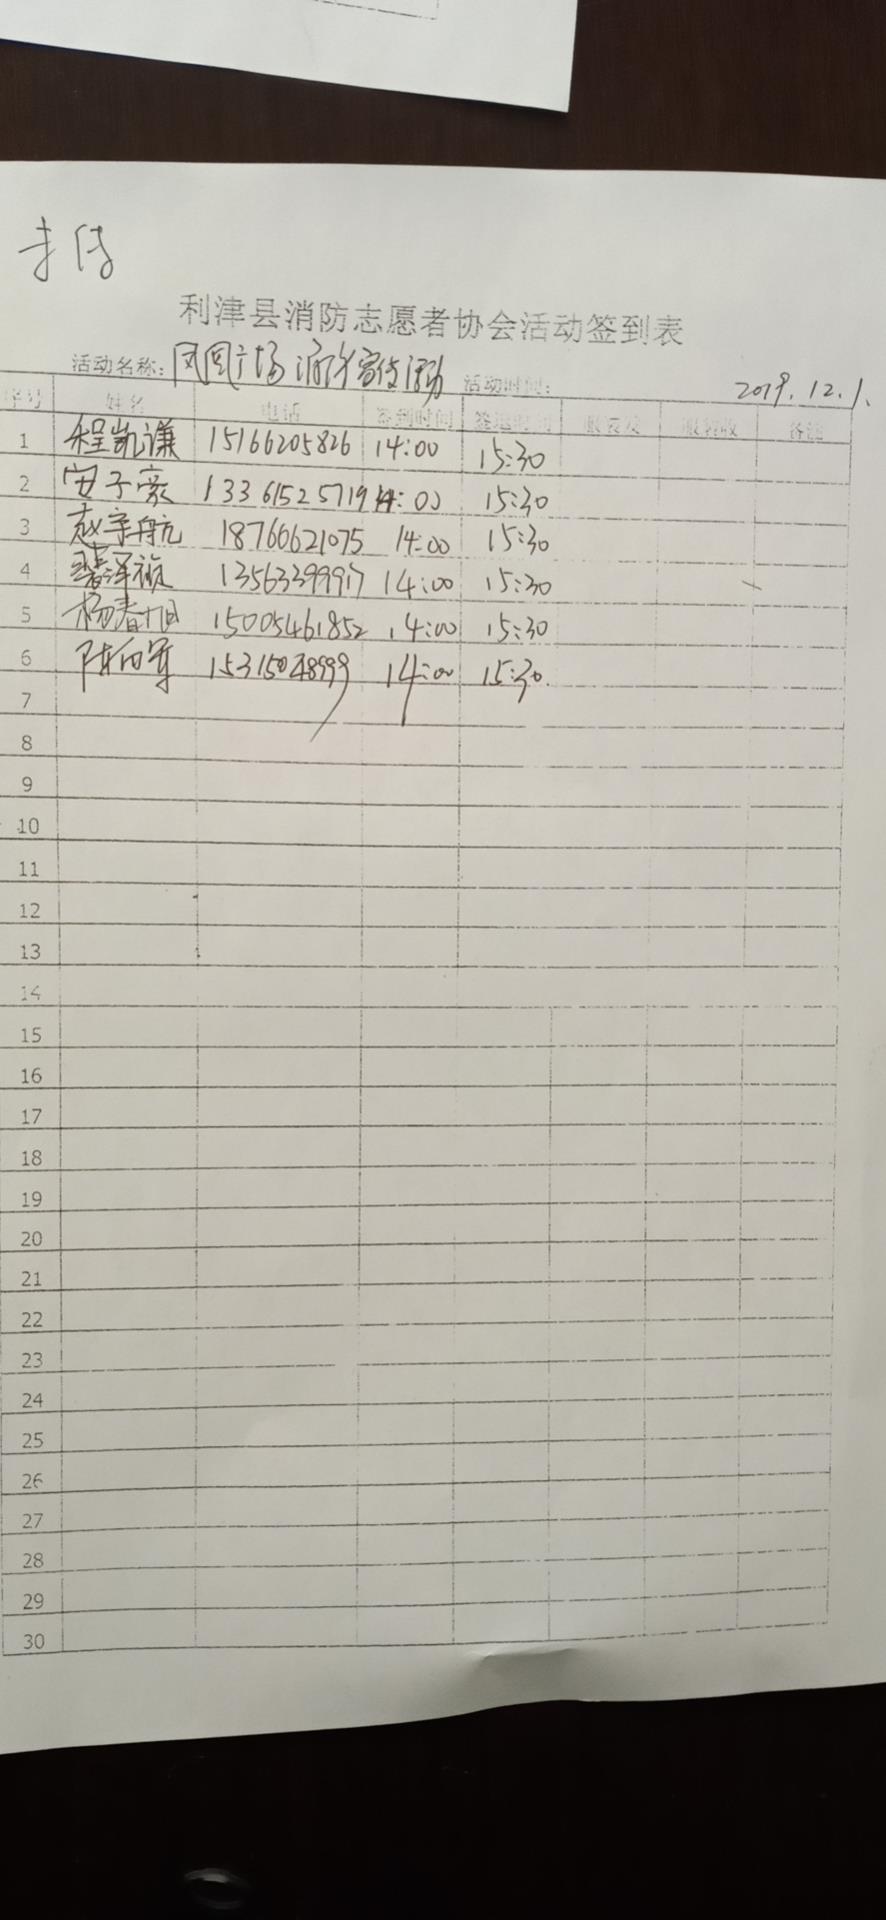 利津县消防志愿者协会活动签到表
活动名称：凤凰广场消防宣传活动 活动时间： 2019.12.1
序号 姓名 电话 签到时间 签退时间 服装发 服装收 备注
1 程凯谦 15166205826 14:00 15:30
2 安子豪 13361525719 14:00 15:30
3 赵宇航 18766621075 14:00 15:30
4 裴泽祯 13563399917 14:00 15:30
5 杨春旭 15005461852 14:00 15:30
6 陈向军 15315048999 14:00 15:30
7
8
9
10
11
12
13
14
15
16
17
18
19
20
21
22
23
24
25
26
27
28
29
30